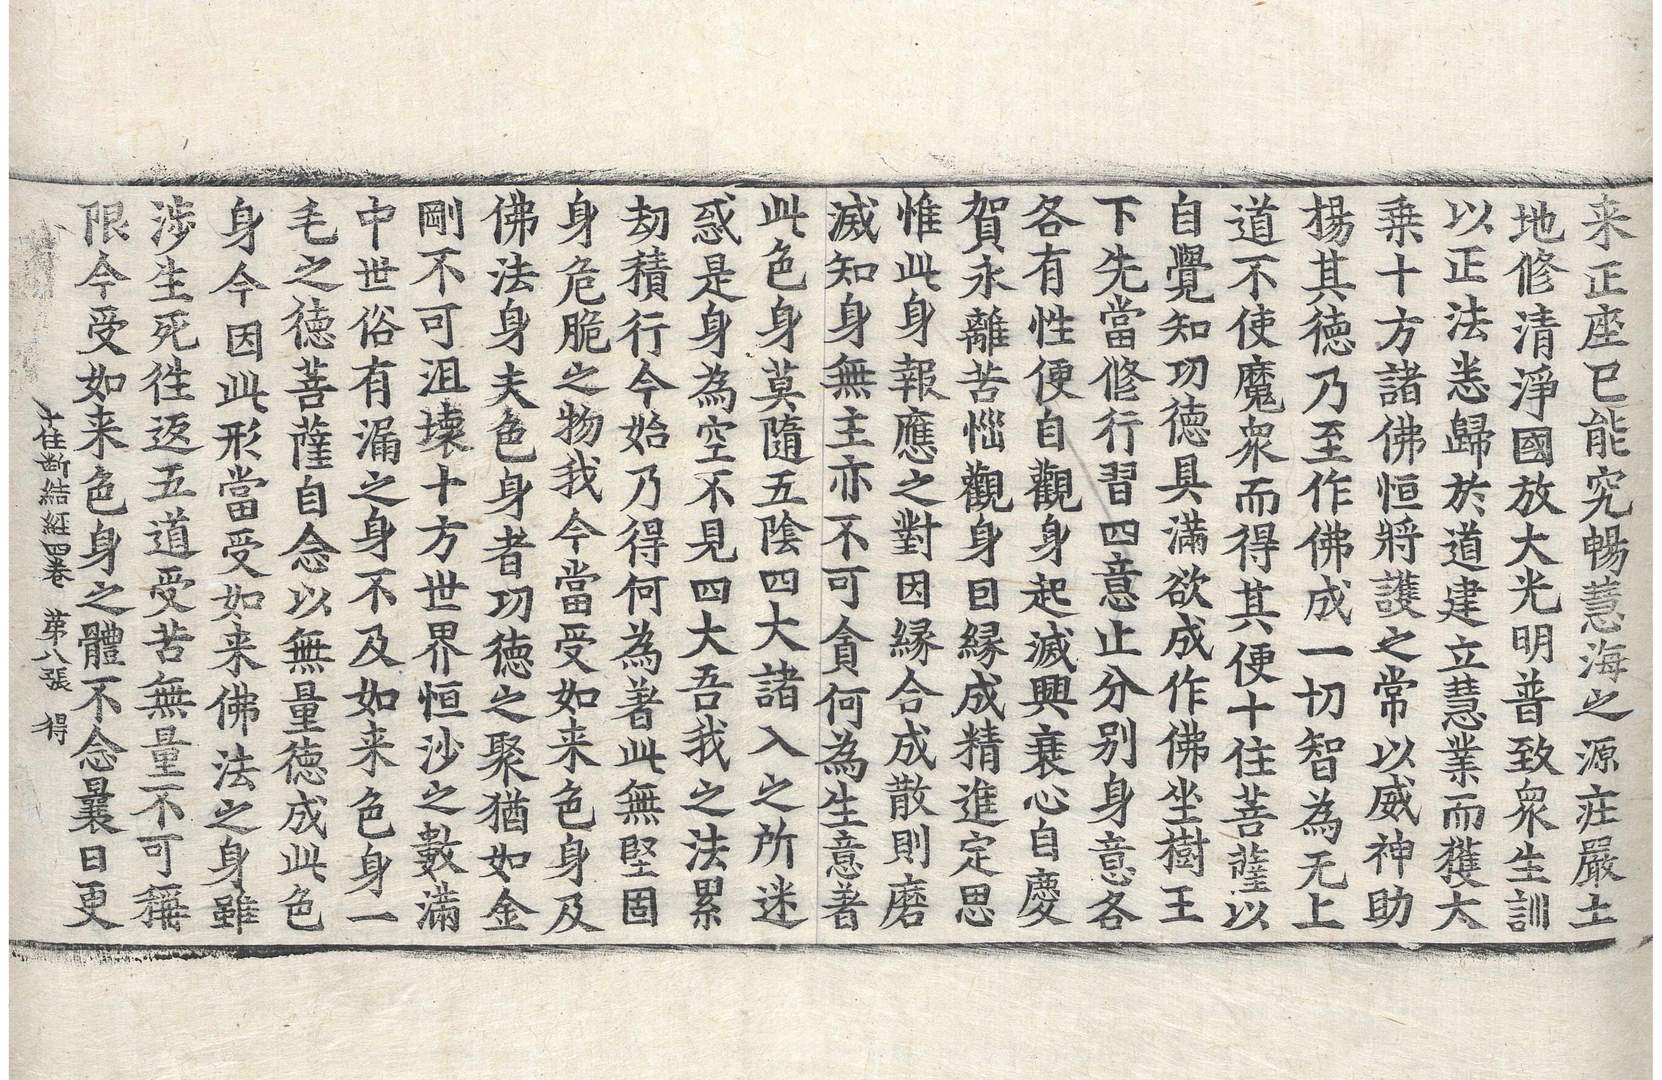 来正座已能究暢慧海之源庄嚴土
地修清淨國放大光明普致衆生訓
以正法悉歸於道建立慧業而獲大
乗十方諸佛恒將護之常以威神助
揚其徳乃至作佛成一切智為无上
道不使魔衆而得其便十住菩薩以
自覺知功徳具滿欲成作佛坐樹王
下先當修行習四意止分別身意各
各有性便自觀身起滅興衰心自慶
賀永離苦惱觀身因縁成精進定思
惟此身報應之對因縁合成散則磨
滅知身無主亦不可貪何為生意著
此色身莫隨五陰四大諸入之所迷
惑是身為空不見四大吾我之法累
劫積行今始乃得何為著此無堅固
身危脆之物我今當受如来色身及
佛法身夫色身者功徳之聚猶如金
剛不可沮壞十方世界恒沙之數滿
中世俗有漏之身不及如来色身一
毛之徳菩薩自念以無量徳成此色
身今因此形當受如来佛法之身雖
涉生死徃返五道受苦無量不可稱
限今受如来色身之體不念曩日更
十住断結経四巻　第八張　得